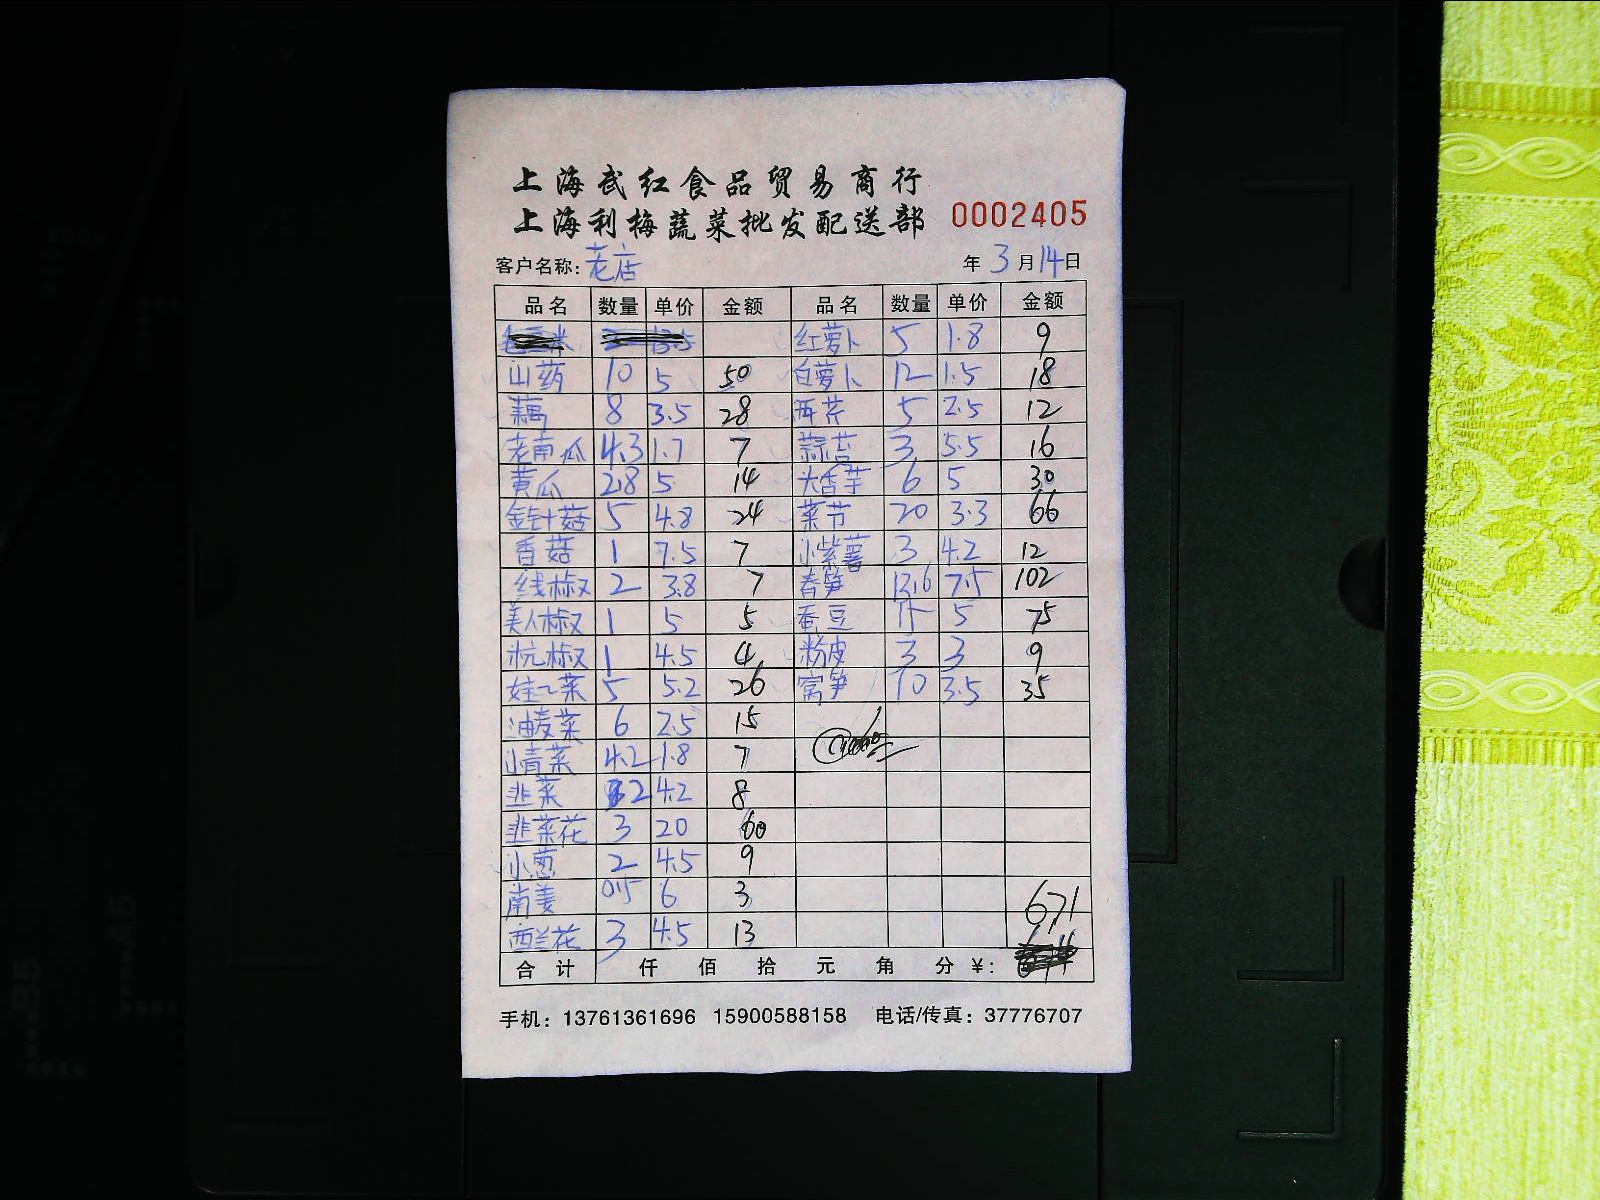 上海武红食品贸易商行
上海利梅蔬菜批发配送部 0002405
客户名称: 老店 年 3 月 14 日
品名 数量 单价 金额 品名 数量 单价 金额
红萝卜 5 1.8 9
山药 10 5 50 白萝卜 12 1.5 18
藕 8 3.5 28 西芹 5 2.5 12
老南瓜 4.3 1.7 7 蒜苔 3 5.5 16
黄瓜 2.8 5 14 大香芋 6 5 30
金针菇 5 4.8 24 菜节 20 3.3 66
香菇 1 7.5 7 小紫薯 3 4.2 12
线椒 2 3.8 7 春笋 13.6 7.5 102
美人椒 1 5 5 蚕豆 15 5 75
杭椒 1 4.5 4 粉皮 3 3 9
娃娃菜 5 5.2 26 窝笋 10 3.5 35
油麦菜 6 2.5 15
小青菜 4.2 1.8 7
韭菜 2 4.2 8
韭菜花 3 20 60
小葱 2 4.5 9
南姜 0.5 6 3
西兰花 3 4.5 13 671
合计 仟 佰 拾 元 角 分 ¥:
手机: 13761361696 15900588158 电话/传真: 37776707